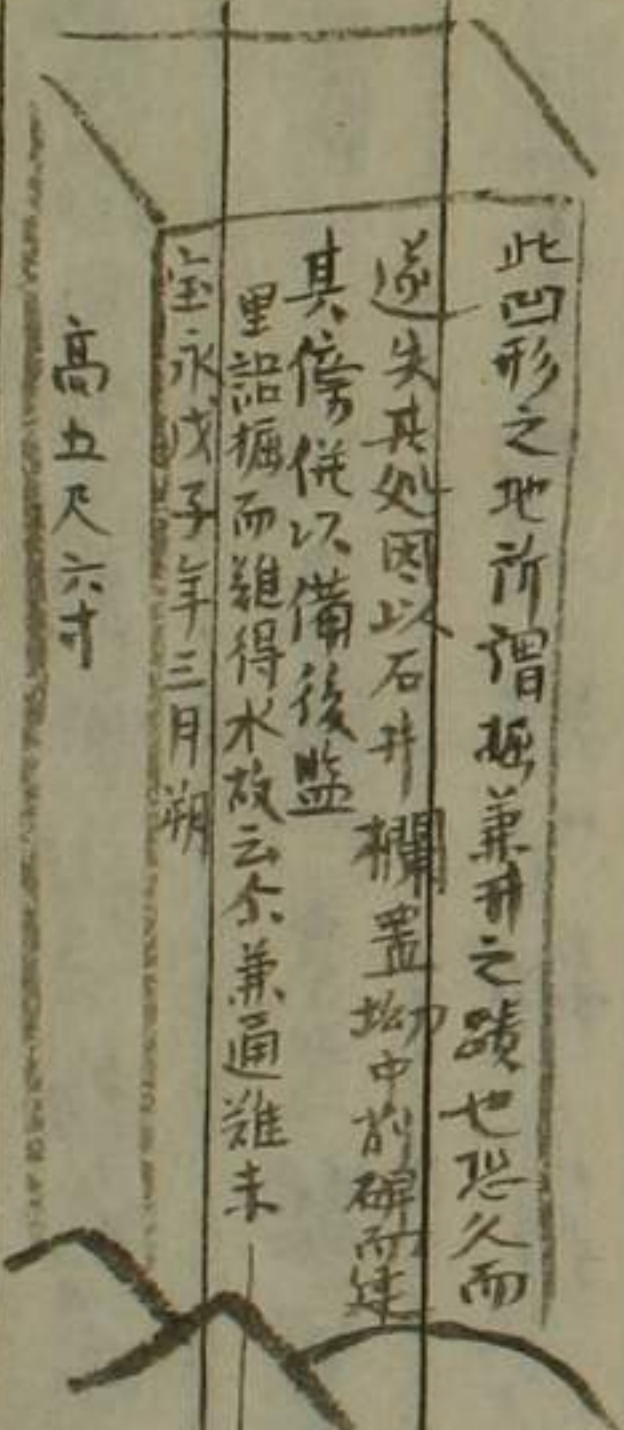 此凹形之地所謂掘兼井之蹟也恐久而
遂失其処因以石井欄置坳中削碑而建
其傍併以備後監
里語掘而難得水故云尓兼通難未
宝永戊子年三月朔
高五尺六寸